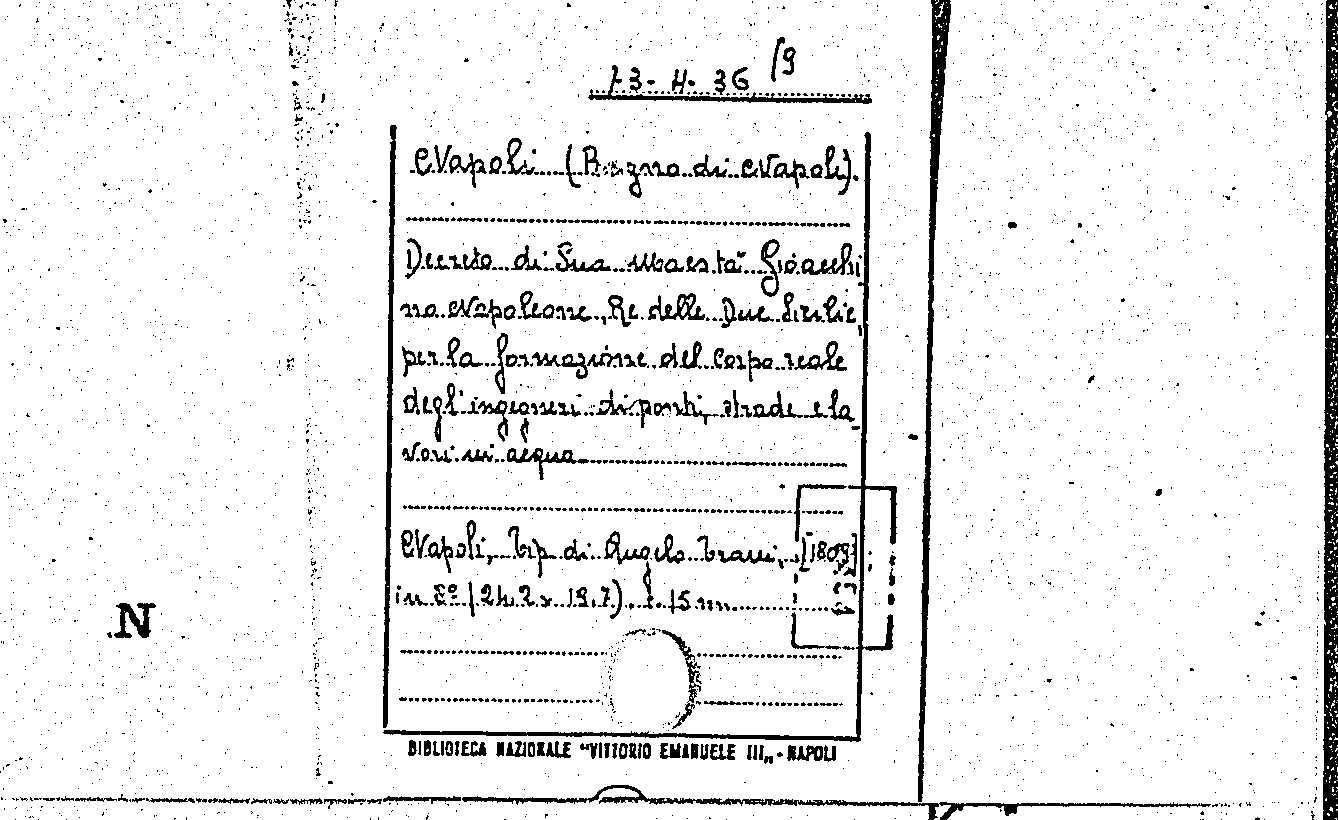 73-H-36 /9
Napoli (Regno di Napoli).
Decreto di Sua Maestà Gioacchi
no Napoleone, Re delle Due Sicilie,
per la formazione del corpo reale
degl'ingegneri di ponti, strade e la
vori di acqua
Napoli, Tip. di Angelo Trani, [1809];
in 8º (24,2 x 19,7). p. 15 nn.
N
BIBLIOTECA NAZIONALE "VITTORIO EMANUELE III„ - NAPOLI